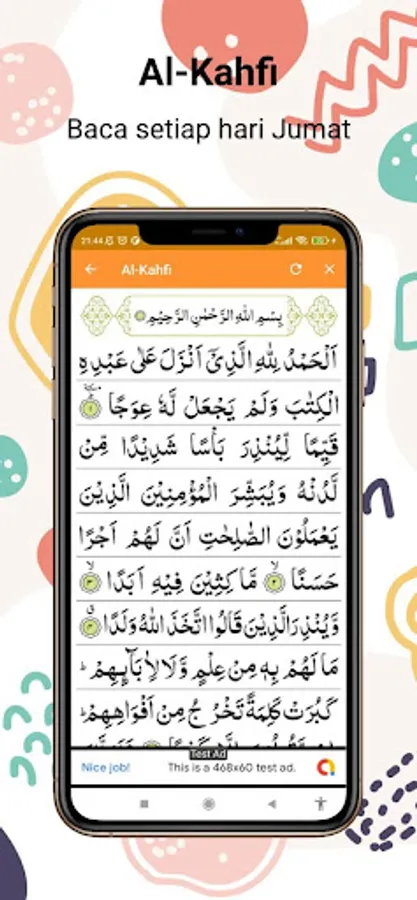 Al-Kahfi
Baca setiap hari Jumat
21.44
Al-Kahfi
بِسْمِ اللهِ الرَّحْمٰنِ الرَّحِيْمِ
اَلْحَمْدُ لِلّٰهِ الَّذِيْٓ اَنْزَلَ عَلٰى عَبْدِهِ
الْكِتٰبَ وَلَمْ يَجْعَلْ لَّهٗ عِوَجًا ۜ ١
قَيِّمًا لِّيُنْذِرَ بَأْسًا شَدِيْدًا مِّنْ
لَّدُنْهُ وَيُبَشِّرَ الْمُؤْمِنِيْنَ الَّذِيْنَ
يَعْمَلُوْنَ الصّٰلِحٰتِ اَنَّ لَهُمْ اَجْرًا
حَسَنًا ۙ ٢ مَّاكِثِيْنَ فِيْهِ اَبَدًا ۙ ٣
وَّيُنْذِرَ الَّذِيْنَ قَالُوا اتَّخَذَ اللّٰهُ وَلَدًا ۖ ٤
مَا لَهُمْ بِهٖ مِنْ عِلْمٍ وَّلَا لِاٰبَاۤىِٕهِمْ ۗ
كَبُرَتْ كَلِمَةً تَخْرُجُ مِنْ اَفْوَاهِهِمْ ۗ
Test Ad
Nice job! This is a 468x60 test ad.